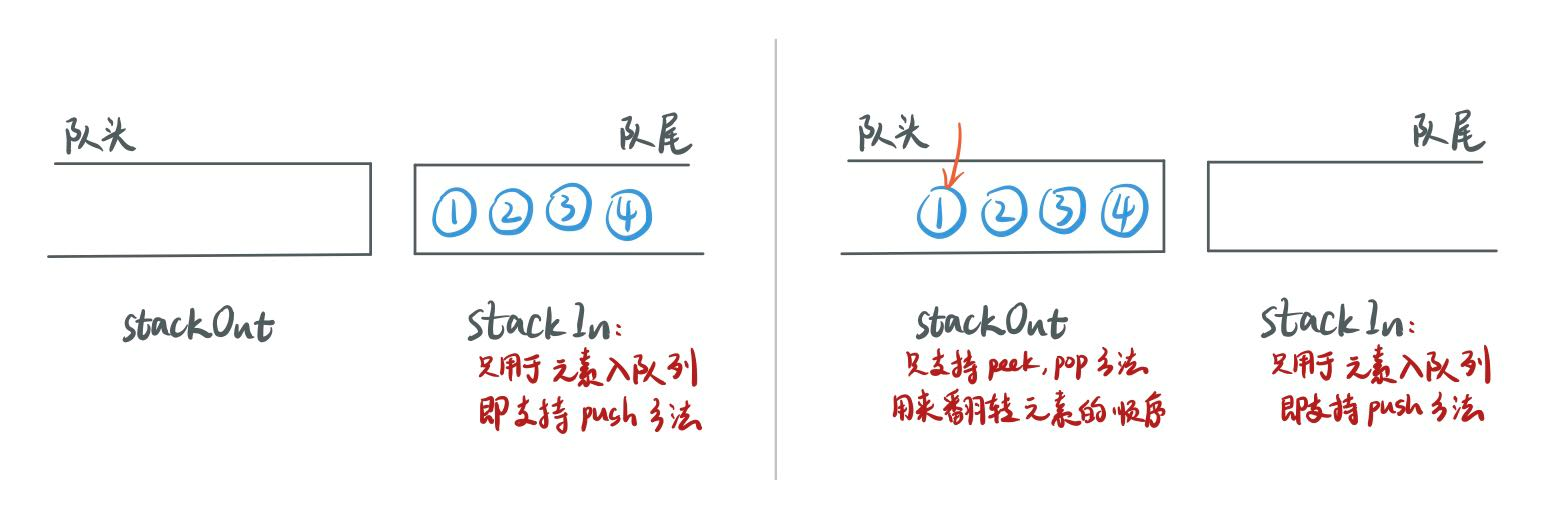 队头
队尾
1 2 3 4
stackOut
stackIn:
只用于元素入队列
即支持 push 方法
队头
队尾
1 2 3 4
stackOut
只支持 peek, pop 方法
用来翻转元素的顺序
stackIn:
只用于元素入队列
即支持 push 方法